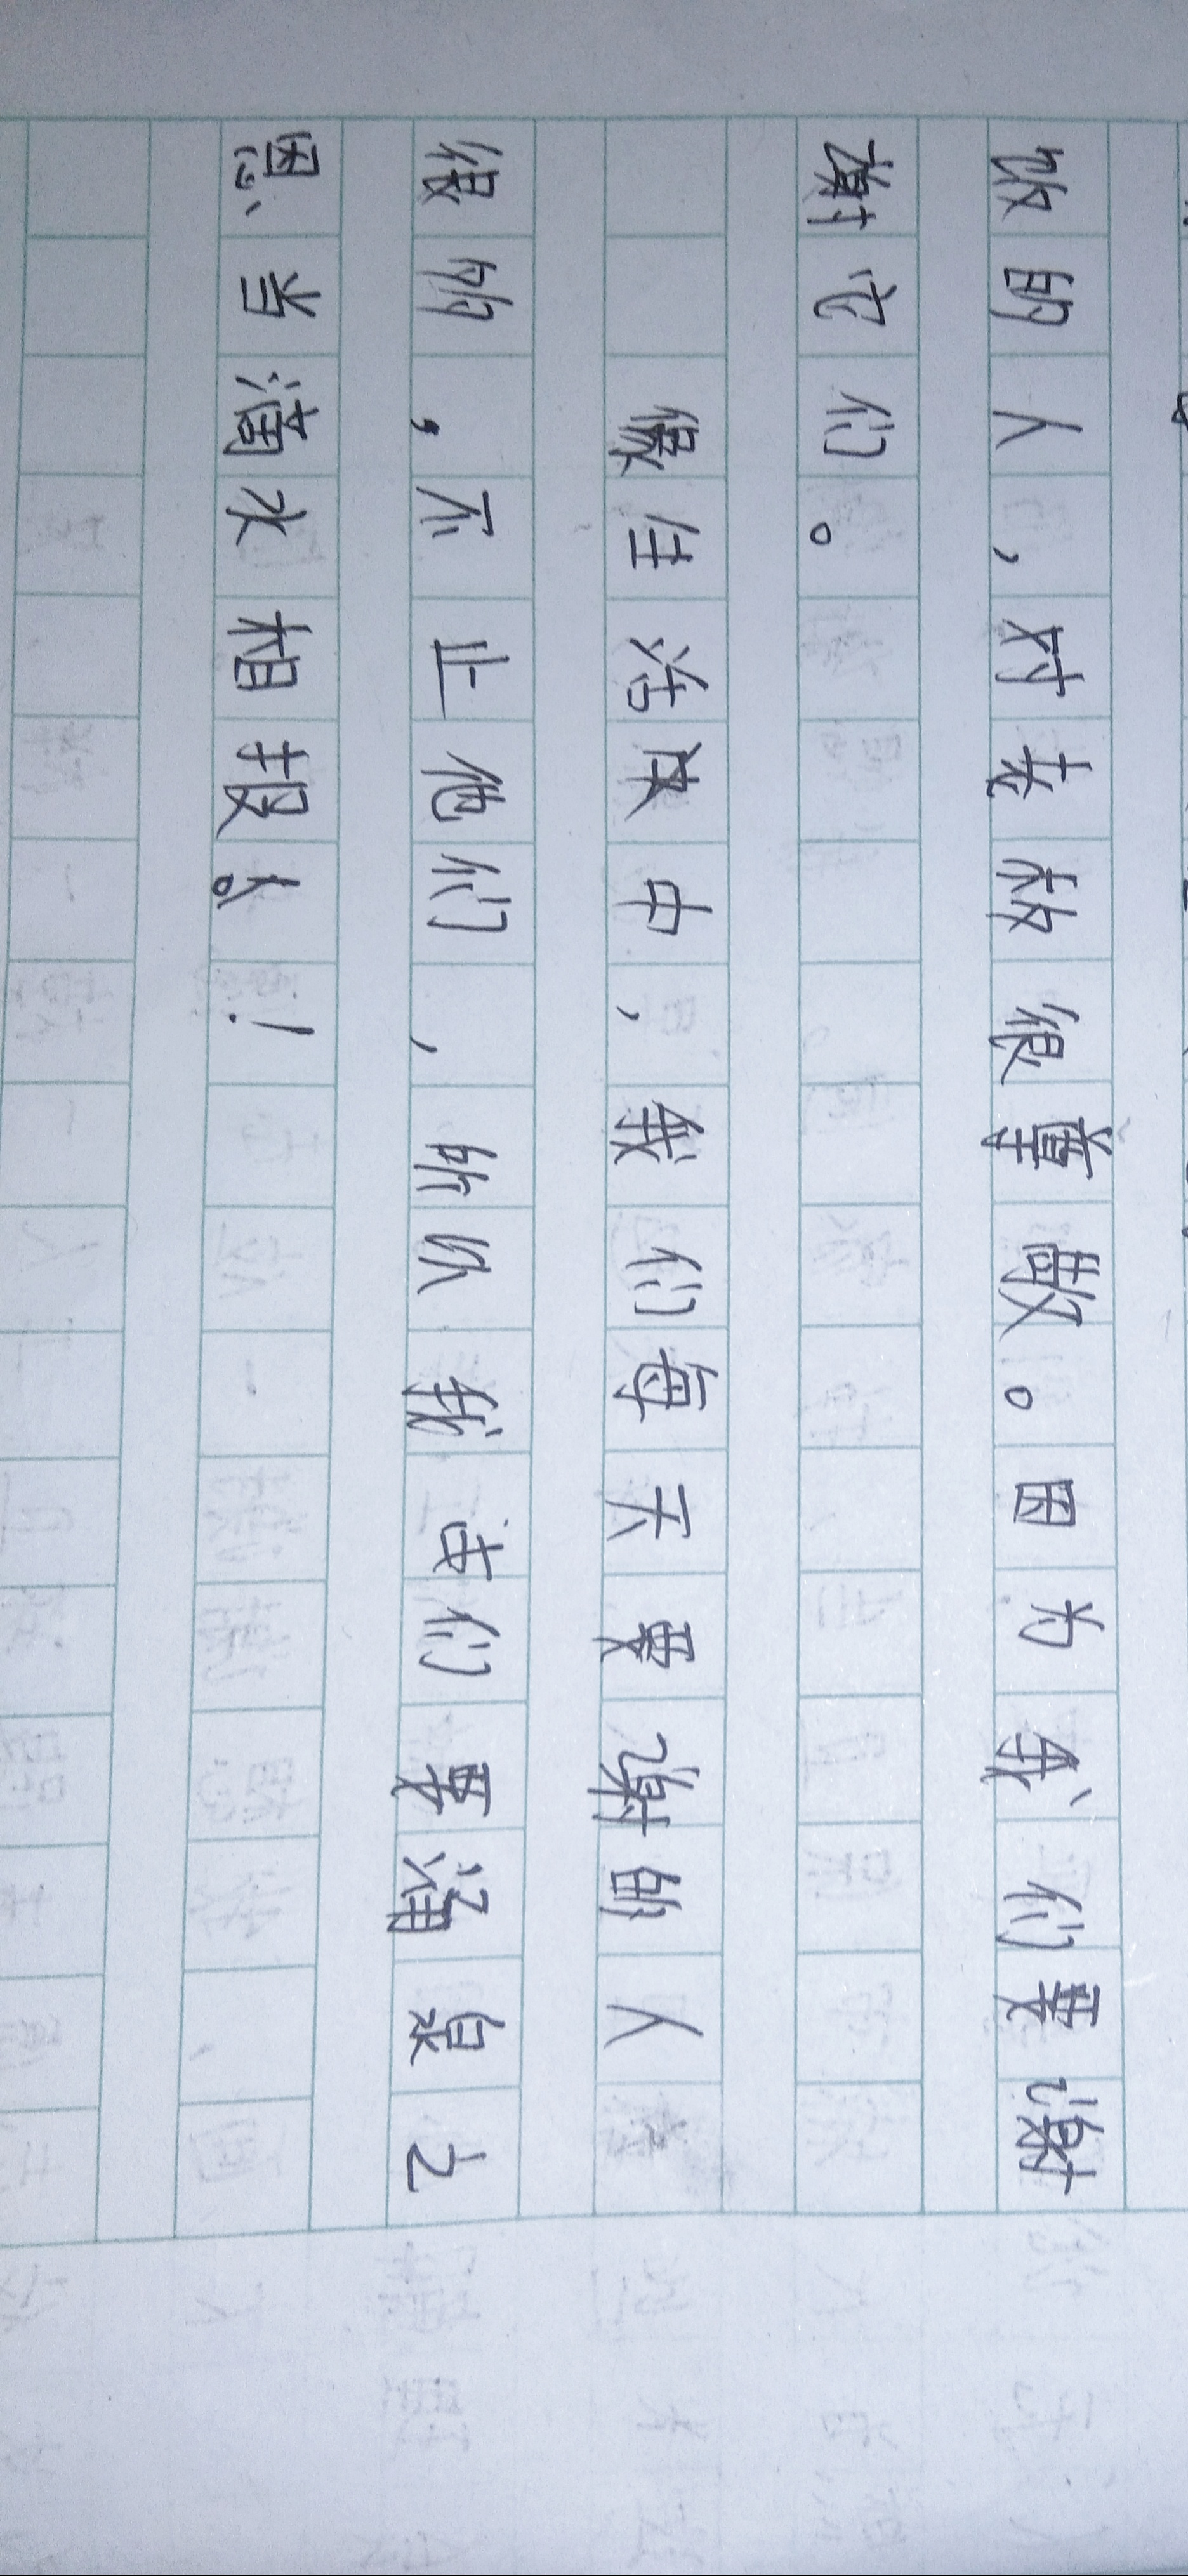 的人，对老很尊敬。因为我们要谢
谢它们。
像生活中，我们每天要谢的人
很，不止他们，所以我们要涌泉之
恩当滴水相报！